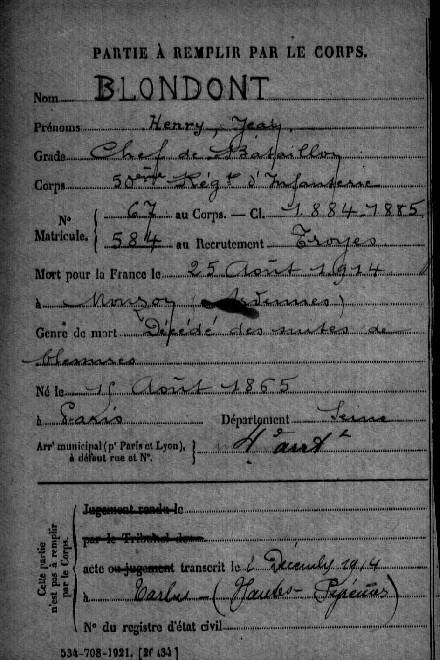 PARTIE À REMPLIR PAR LE CORPS.
Nom BLONDONT
Prénoms Henry, Jean.
Grade Chef de Bataillon
Corps 50ème Régt d'Infanterie
N° Matricule. { 67 au Corps. — Cl. 1.884-1885
584 au Recrutement Troyes
Mort pour la France le 25 Août 1914
à (Ardennes)
Genre de mort Décédé des suites de
blessures
Né le 15 Août 1865
à Paris Département Seine
Arrt municipal (pr Paris et Lyon), à défaut rue et N°. } 4e arrt
Cette partie n'est pas à remplir par le Corps.
Jugement rendu le
par le Tribunal de
acte ou jugement transcrit le Décemb 1914
à Tarbes (Hautes-Pyrénées)
N° du registre d'état civil
534-708-1921. [26434]